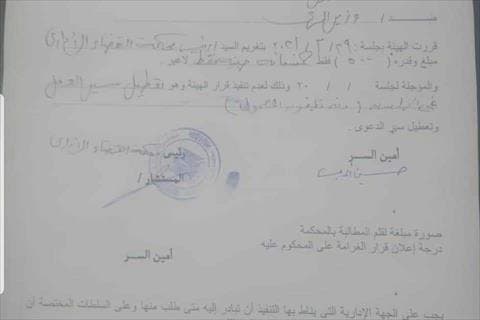 قررت الهيئة بجلسة ٢٩ / ٣ / ٢٠٢١ بتغريم السيد / رئيس محكمة القضاء الإداري
مبلغ وقدره ( ٥٠٠ ) فقط خمسمائة جنيه فقط لاغير .
والمؤجلة لجلسة / / ٢٠ وذلك لعدم تنفيذ قرار الهيئة وهو تعطيل سير العمل
وتعطيل سير الدعوى .
أمين السر
رئيس محكمة القضاء الإداري
المستشار /
صورة مبلغة لقلم المطالبة بالمحكمة
درجة إعلان قرار الغرامة على المحكوم عليه
أمين السر
يجب على الجهة الإدارية التي يناط بها التنفيذ أن تبادر إليه متى طلب منها وعلى السلطات المختصة أن